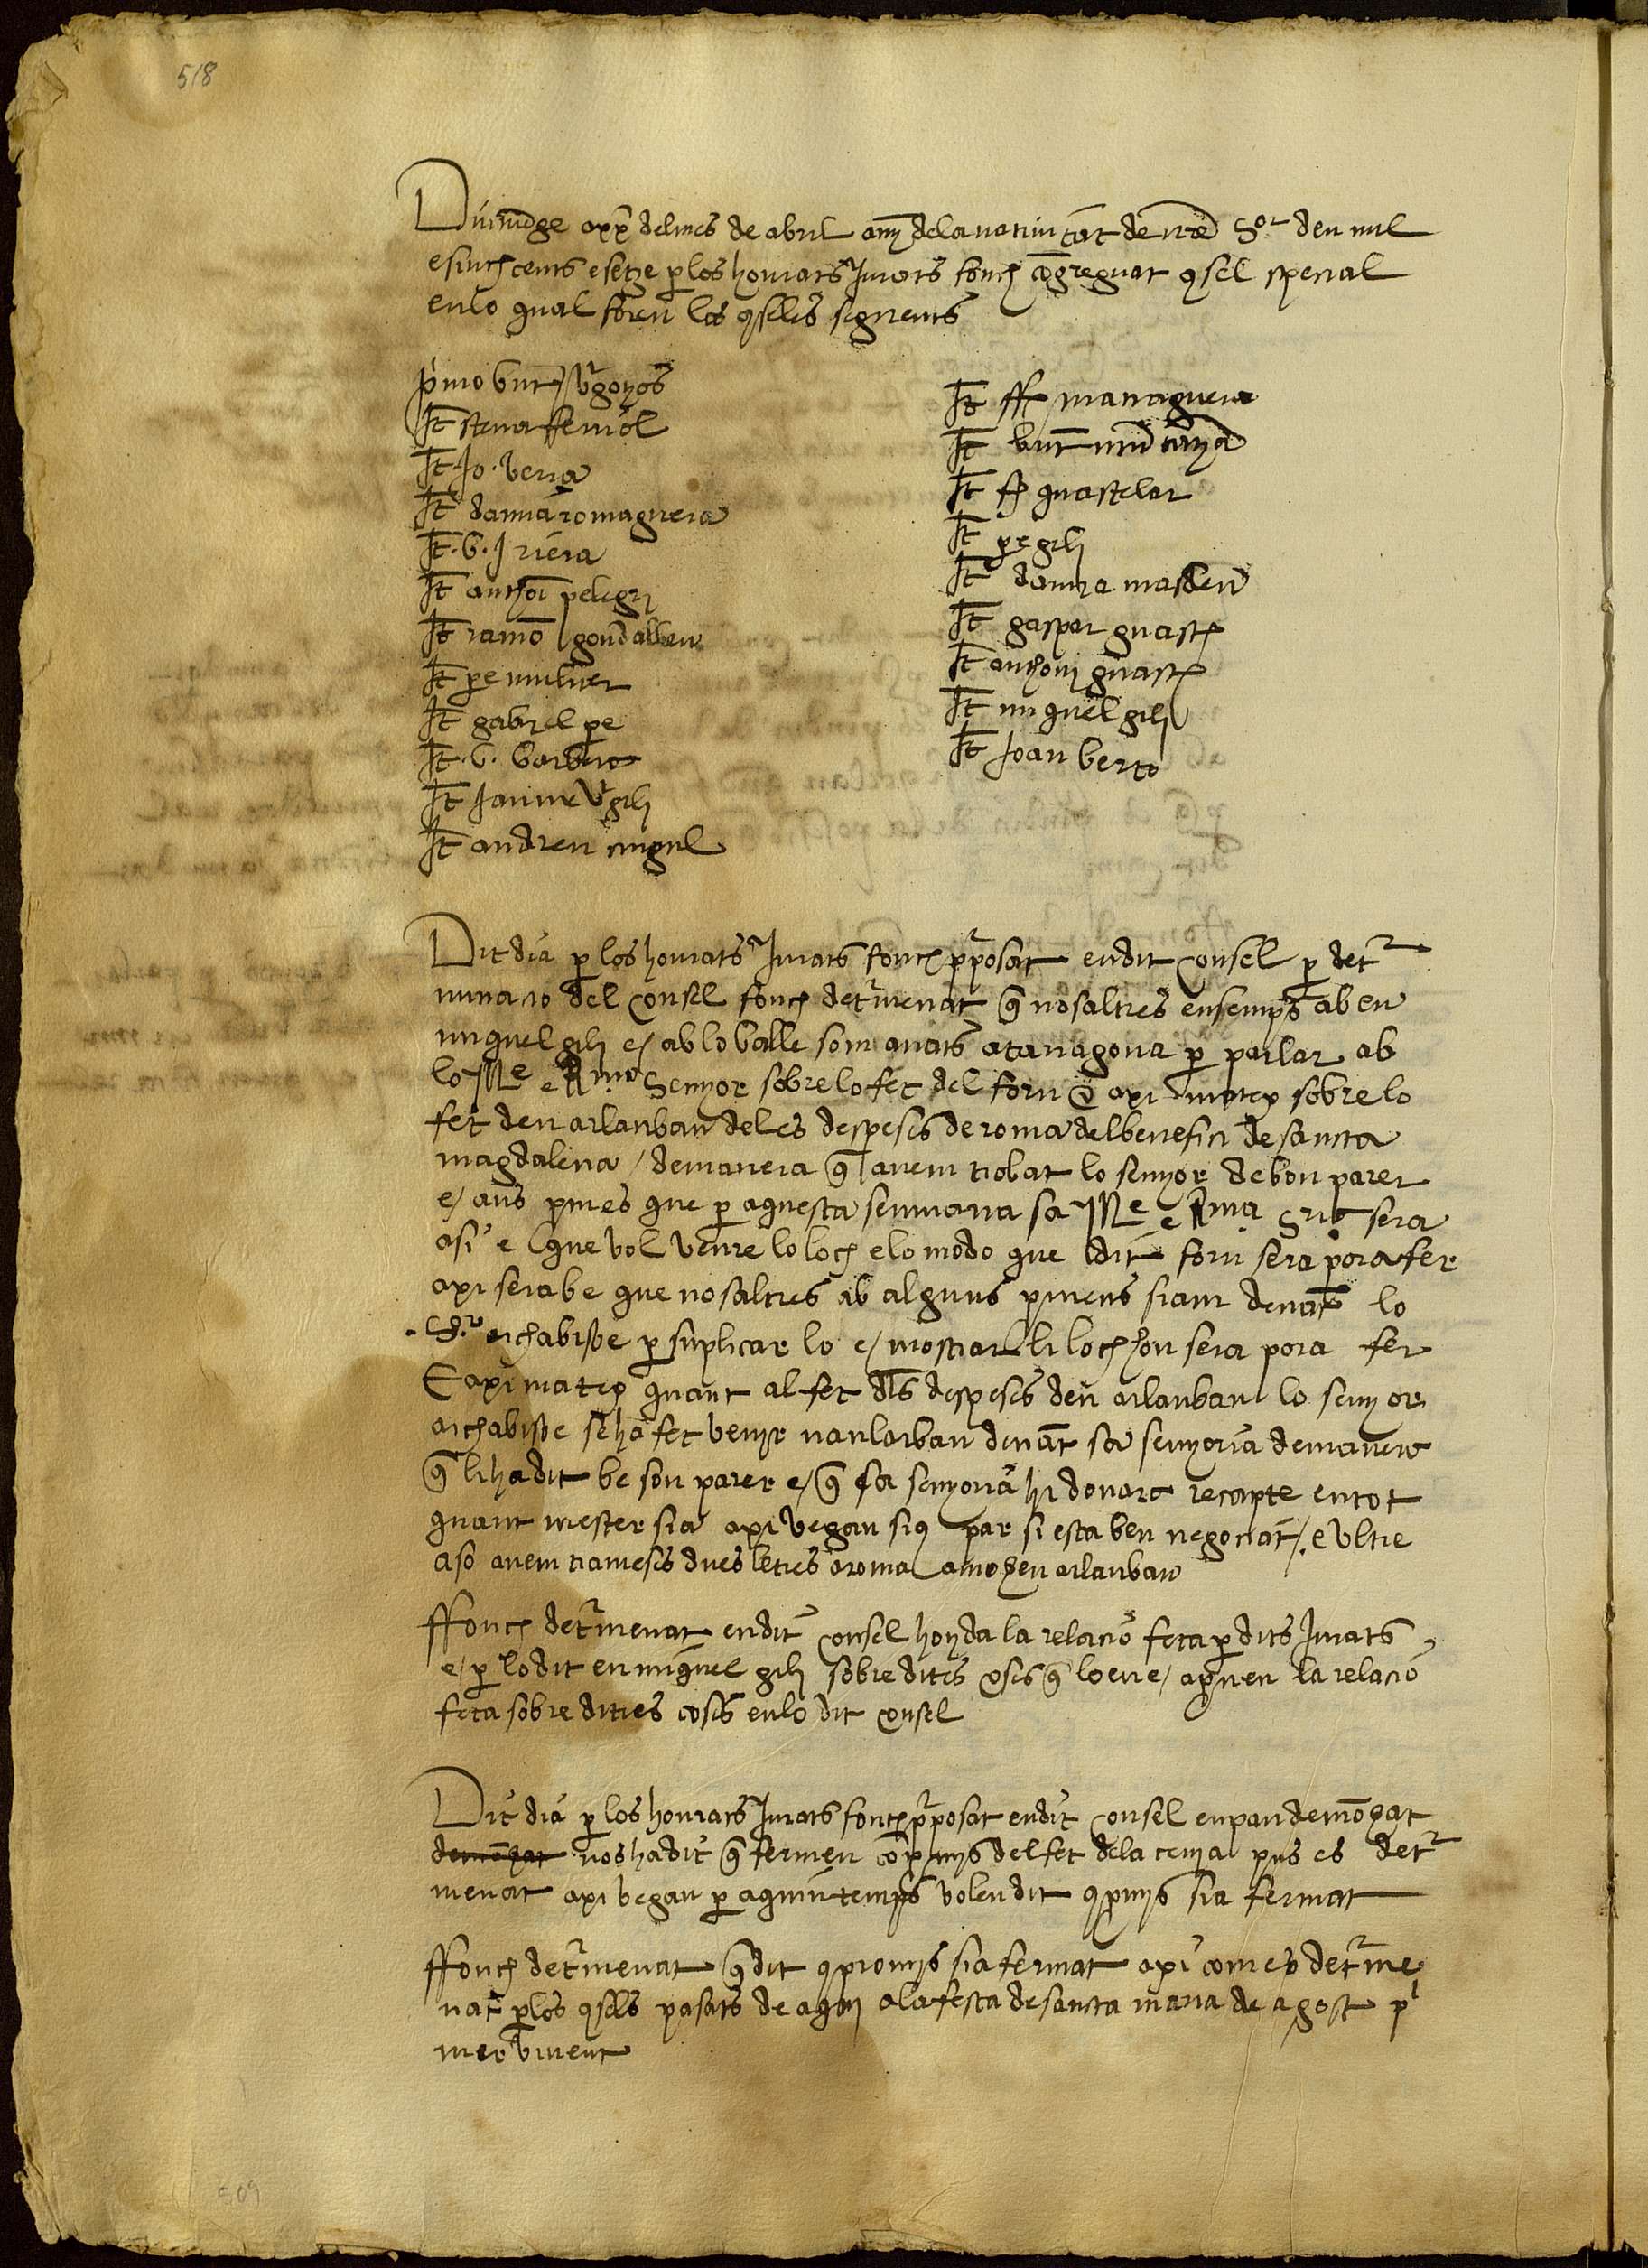 518
Diumẽge a xx del mes de abril any dela natiuitat de nr̃e Sor deu mil
e sinch cents e setze p los honrats Jurats fonch cõgreguat ꝯsel special
en lo qual foren los ꝯsellés seguents
pimo bnt virgonyos
It steua ferriol
It Jo. veria
It damia romaguera
It .b. J riera
It anthoi pelegri
It ramõ gondalbeu
It pe muluer
It gabriel pe
It .b. barbera
It Jaume v gili
It andreu cugul
It ff managuera
It bnt mũtanya
It ff guastelar
It pe gili
It damia masdeu
It gaspar guasch
It anthoni guasch
It miquel gili
It Joan berto
Dit dia p los honrats Jurats fonch pposat en dit consel p detr
minacio del consel fonch detrmenat q̃ nosaltres ensemps ab en
miquel gili e/ ab lo balle som anats a taragona p parlar ab
lo Ille e Rmo Senyor sobre lo fet del forn e axi matex sobre lo
fet den arlanbau de les despeses de roma del benefici de sancta
magdalena / de manera q̃ avem trobat lo senyor de bon parer
e/ ans pmes que p aquesta semmana sa Ille e Rma Sria sera
asi e que vol veure lo loch e lo modo que dit forn sera pora fer
axi sera be que nosaltres ab alguns pmens siam denãt lo
Sor archabisbe p suplicar lo e/ mostrar li loch hon sera pora fer
E axi matex quant al fet dls despeses den arlanbau lo senyor
archabisbe se ha fet venir nanlarbau denãt sa senyoria de manera
q̃ li ha dit be son parer e/ q̃ sa senyoria hi donara recapte en tot
quant mester sia axi vegan siꝯ par si esta ben negociat /. e vltre
aso avem trameses dues letres a roma a mosen arlanbau
ffonch detrmenat en dit consel hoyda la relacio feta p dits Jurats
e/ p lo dit en miquel gili sobre dites coses q̃ loen e/ apuen la relacio
feta sobre dites coses en lo dit consel
Dit dia p los honrats Jurats fonch pposat en dit consel en pau de mõgat
de mõgat nos ha dit q̃ fermen cõpmis del fet dela cenia pus es detr
menat axi vegan p aquin temps volen dit ꝯpmis sia fermat
ffonch detrmenat q̃ dit ꝯpromis sia fermat axi com es detrme
nat p los ꝯsels pasats de aqui a la festa de sancta maria de agost pi
mer vinent
509